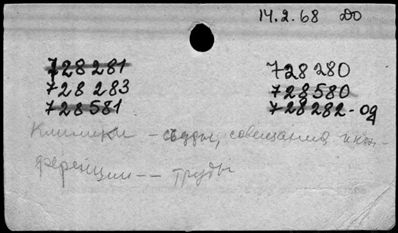 14.2.68 До
728 281 728 280
728 283 728 580
728 581 728 282-од
Клиники - съезды, совещания и кон-
ференции -- труды